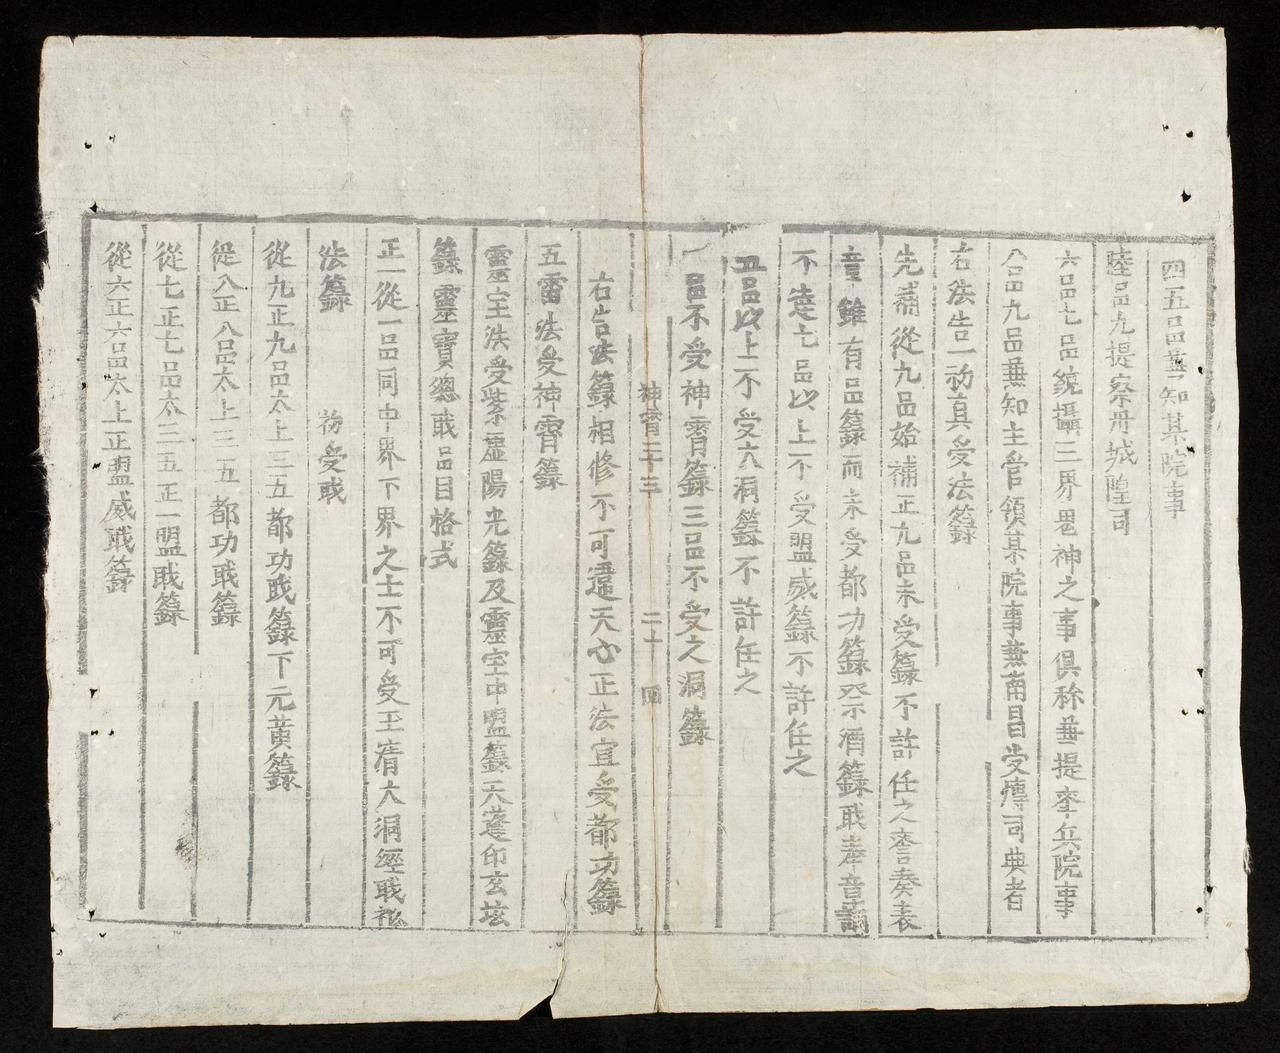 四五品兼知某院事
陸品九提察丹城隍司
六品七品統攝三界鬼神之事俱称兼提李兵院事
八品九品兼知主管領某院事兼南昌受煉司典者
右法告一初真受法籙
先補從九品始補正九品未受籙不許任之章奏表
章雖有品籙而未受都功籙祭酒籙戢奉章詞
不違七品以上不受盟威籙不許任之
五品以上不受六洞籙不許任之
一品不受神霄籙三品不受之洞籙
神霄二十三 二十四
右告法籙相修不可違天心正法宜受都功籙
五雷法受神霄籙
靈宝法受紫虛陽光籙及靈宝中盟籙天臺印玄坛
籙靈寶總戢品目格式
正一從一品同中界下界之士不可受玉清大洞經戢
法籙 初受戢
從九正九品太上三五都功戢籙下元黃籙
從八正八品太上三五都功戢籙
從七正七品太三五正一盟戢籙
從六正六品太上正盟威戢籙